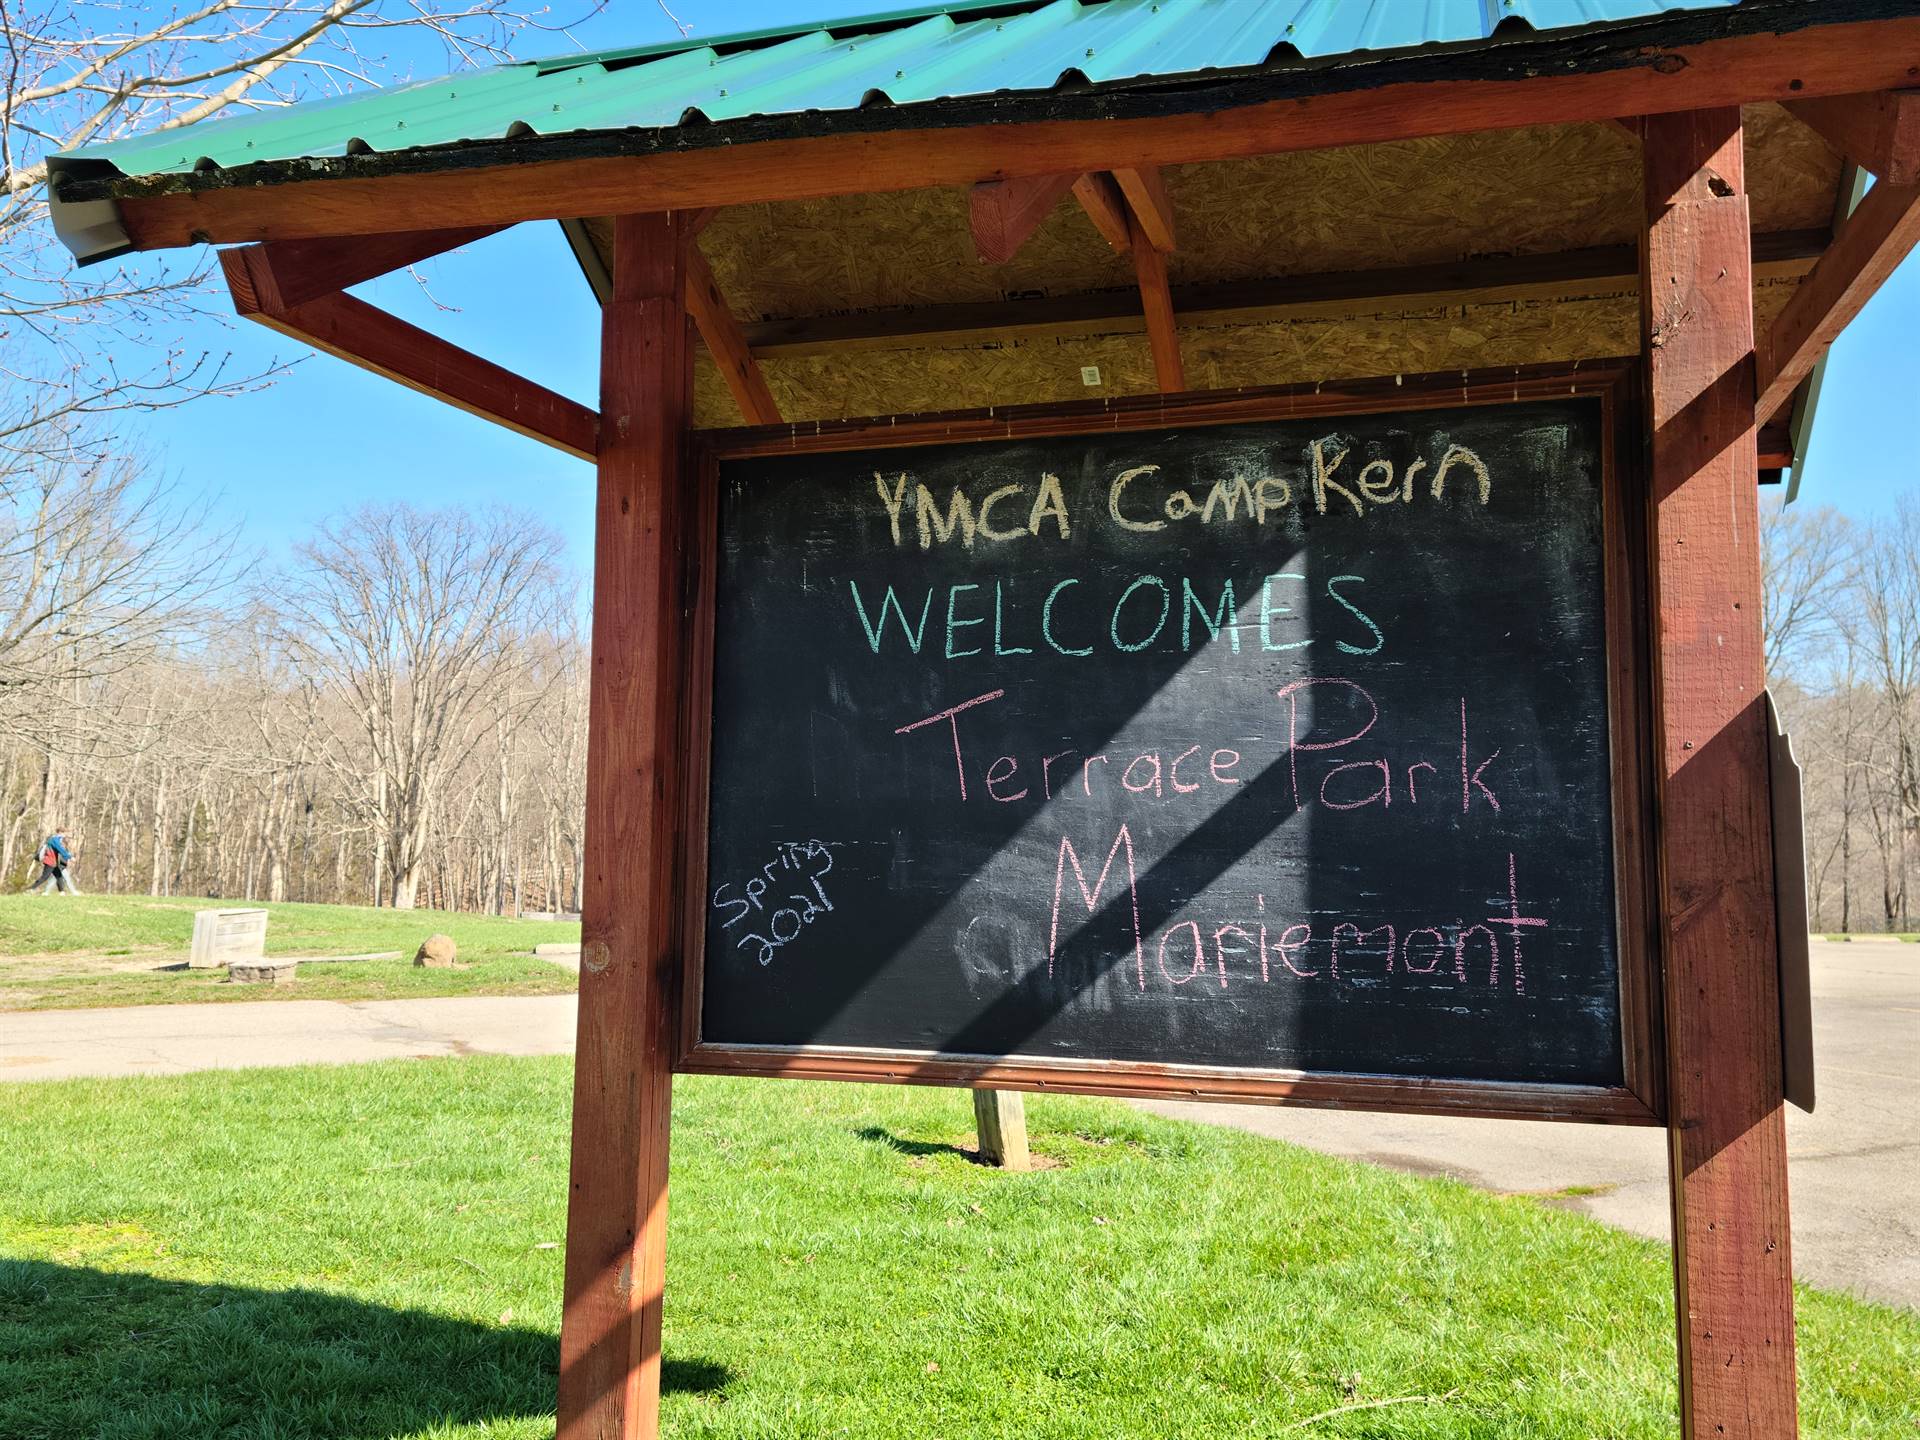 YMCA Camp Kern
WELCOMES
Terrace Park
Mariemont
Spring
2021